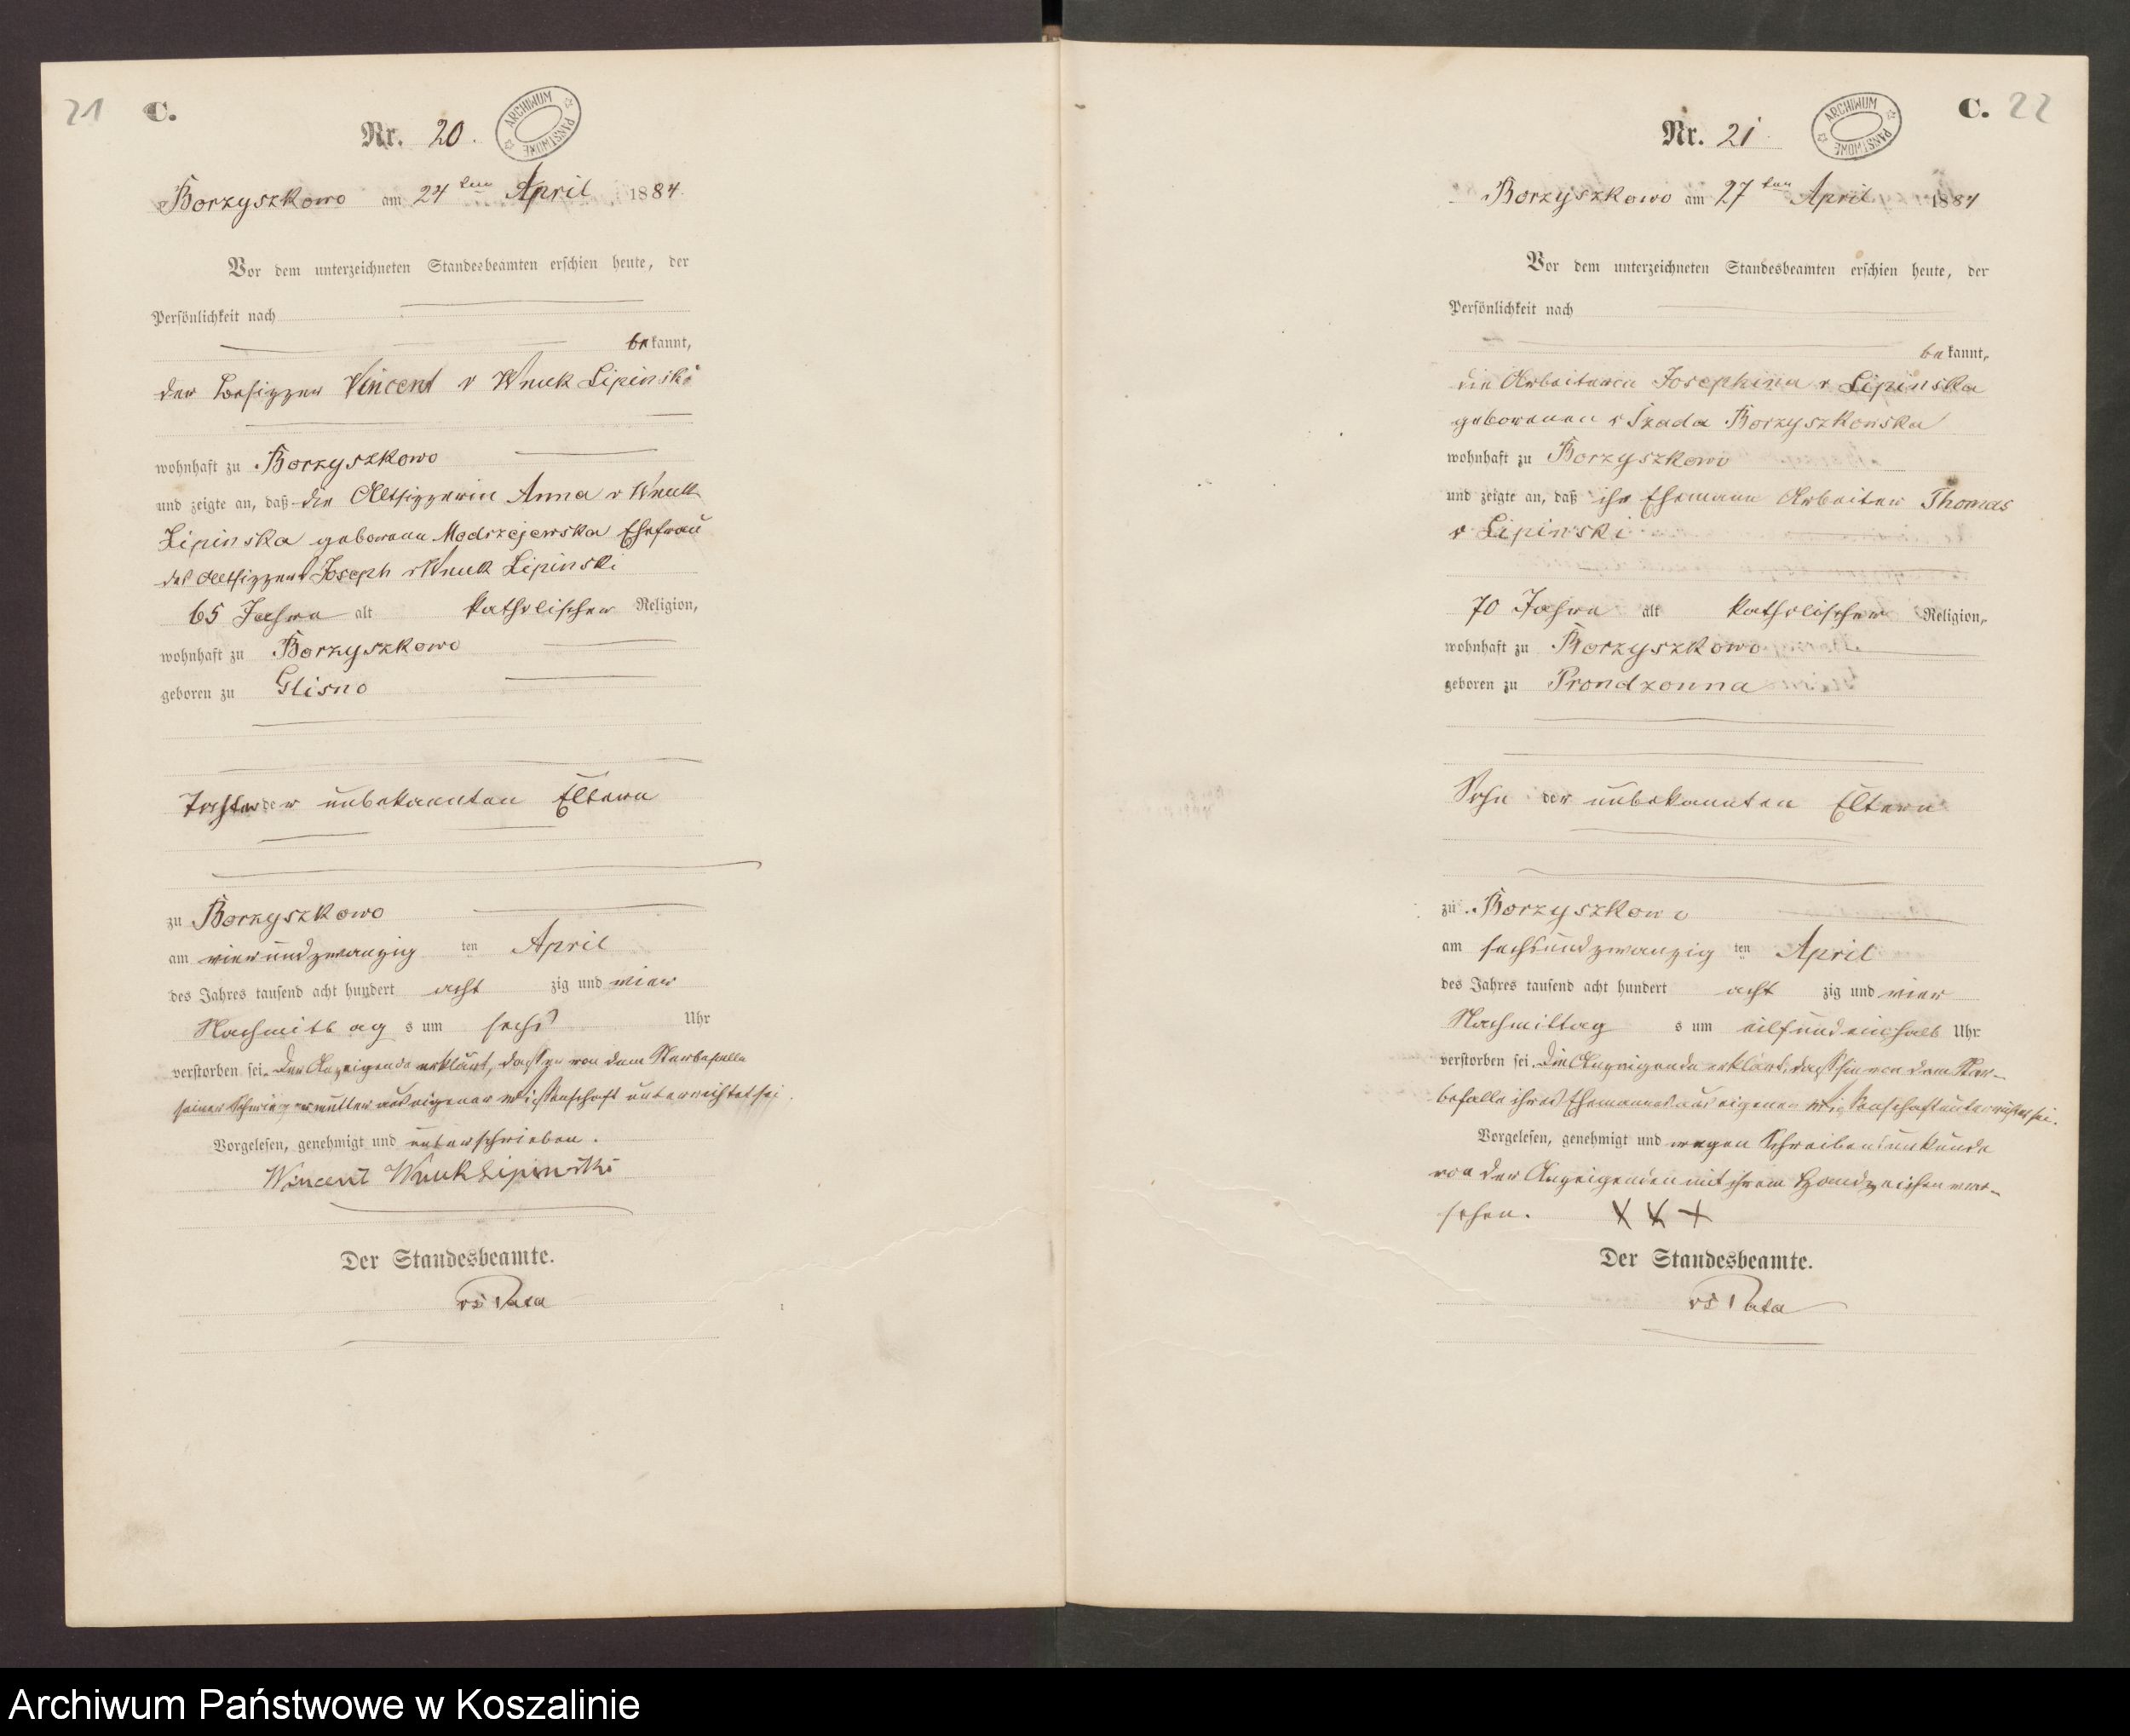 21 C.
Nr. 20.
ARCHIWUM PAŃSTWOWE
Borzyszkowo am 24ten April 1884.
Vor dem unterzeichneten Standesbeamten erschien heute, der
Persönlichkeit nach
bekannt,
der Besitzer Vincent v Wnuk Lipinski
wohnhaft zu Borzyszkowo
und zeigte an, daß die Altsitzerin Anna v Wnuk
Lipinska geborene Modrzejewska Ehefrau
des Altsitzers Joseph v Wnuk Lipinski
65 Jahre alt katholischer Religion,
wohnhaft zu Borzyszkowo
geboren zu Glisno
Tochter der unbekannten Eltern
zu Borzyszkowo
am vierundzwanzig ten April
des Jahres tausend acht hundert acht zig und vier
Nachmittags um sechs Uhr
verstorben sei. Der Anzeigende erklärt, dass er von dem Sterbefalle
seiner Schwiegermutter aus eigener Wissenschaft unterrichtet sei.
Vorgelesen, genehmigt und unterschrieben.
Wincent Wnuk Lipinski
Der Standesbeamte.
C. 22
Nr. 21
ARCHIWUM PAŃSTWOWE
Borzyszkowo am 27ten April 1884
Vor dem unterzeichneten Standesbeamten erschien heute, der
Persönlichkeit nach
bekannt,
die Arbeiterin Josephina v Lipinska
geborenen v Szada Borzyszkowska
wohnhaft zu Borzyszkowo
und zeigte an, daß ihr Ehemann Arbeiter Thomas
v Lipinski
70 Jahre alt katholischer Religion,
wohnhaft zu Borzyszkowo
geboren zu Prondzonna
Sohn der unbekannten Eltern
zu Borzyszkowo
am sechsundzwanzig ten April
des Jahres tausend acht hundert acht zig und vier
Nachmittags um eilfundeinhalb Uhr
verstorben sei. Die Anzeigende erklärt, dass sie von dem Ster-
befalle ihres Ehemannes aus eigener Wissenschaft unterrichtet sei.
Vorgelesen, genehmigt und wegen Schreibensunkunde
von der Anzeigenden mit ihrem Handzeichen ver-
sehen. X X X
Der Standesbeamte.
Archiwum Państwowe w Koszalinie